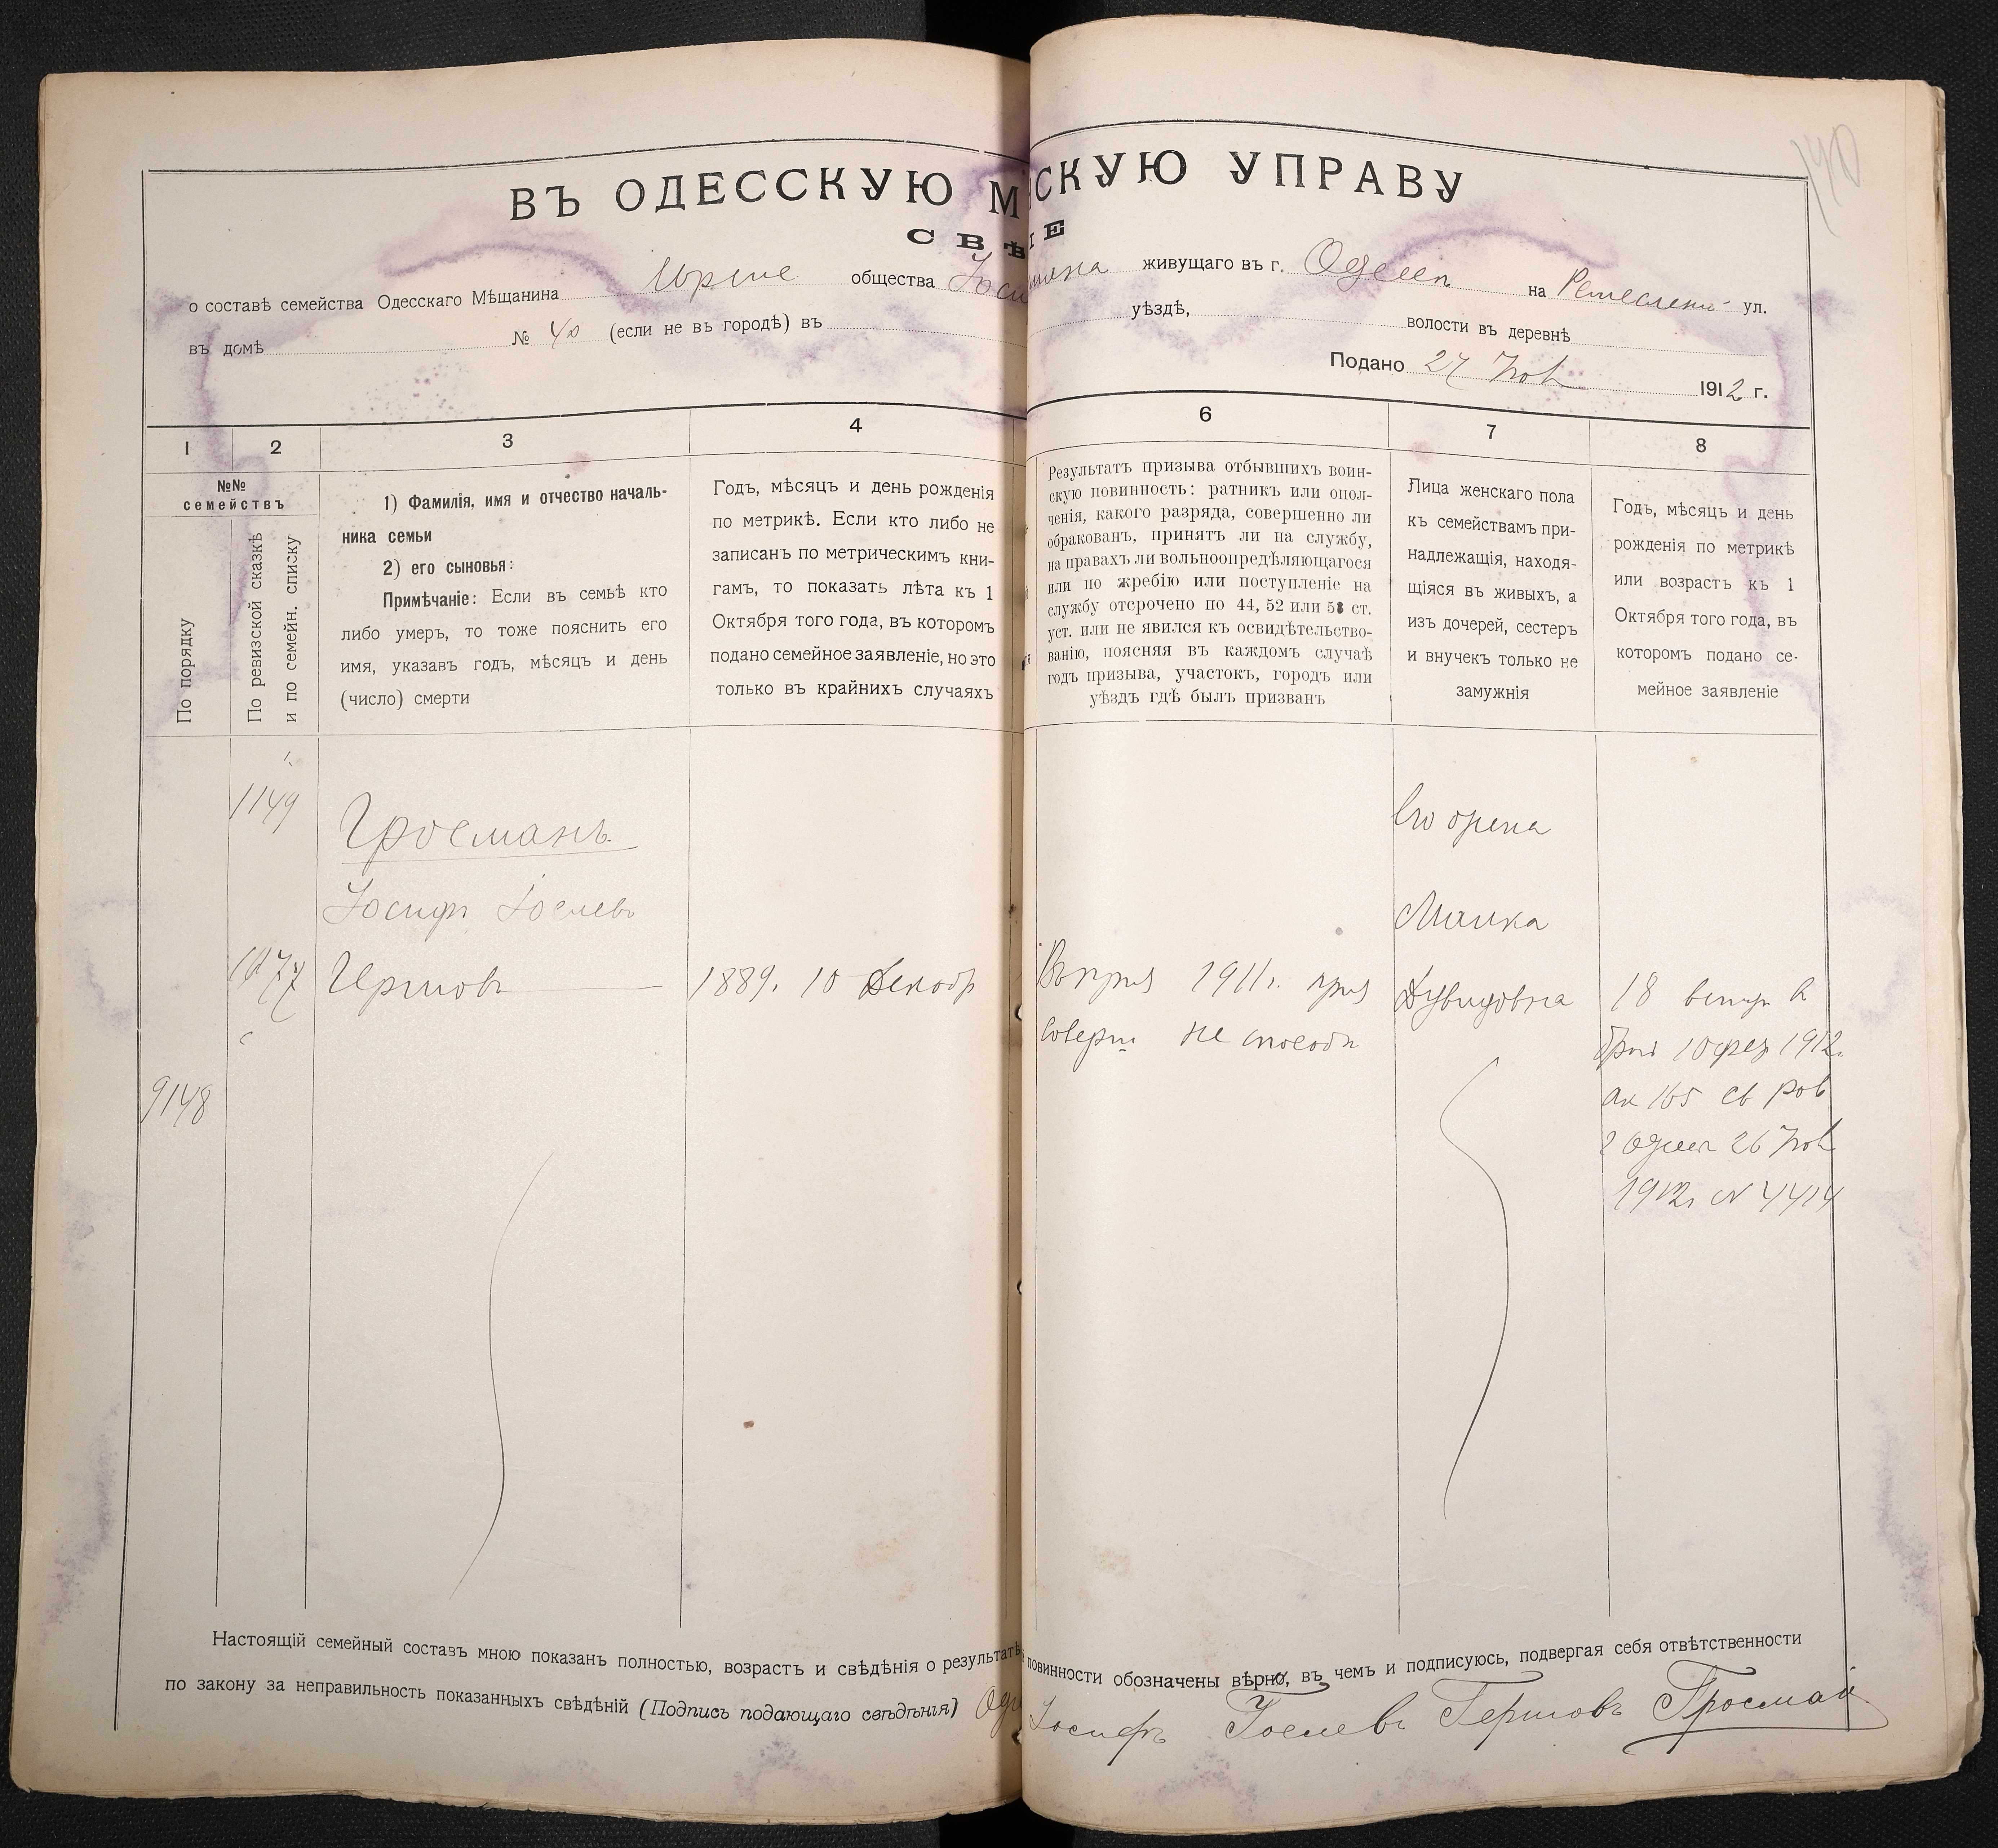 ВЪ ОДЕССКУЮ М СКУЮ УПРАВУ
СВѢ ІЕ
о составѣ семейства Одесскаго Мѣщанина общества живущаго въ г. Одессѣ на Ремеслен ул.
въ домѣ № 40 (если не въ городѣ) въ уѣздѣ, волости въ деревнѣ
Подано 27 Ноя 1912 г.
1
2
3
4
6
7
8
№№
семействъ
По порядку
По ревизской сказкѣ
и по семейн. списку
1) Фамилія, имя и отчество началь-
ника семьи
2) его сыновья:
Примѣчаніе: Если въ семьѣ кто
либо умеръ, то тоже пояснить его
имя, указавъ годъ, мѣсяцъ и день
(число) смерти
Годъ, мѣсяцъ и день рожденія
по метрикѣ. Если кто либо не
записанъ по метрическимъ кни-
гамъ, то показать лѣта къ 1
Октября того года, въ которомъ
подано семейное заявленіе, но это
только въ крайнихъ случаяхъ
Результатъ призыва отбывшихъ воин-
скую повинность: ратникъ или опол-
ченія, какого разряда, совершенно ли
обракованъ, принятъ ли на службу,
на правахъ ли вольноопредѣляющагося
или по жребію или поступленіе на
службу отсрочено по 44, 52 или 53 ст.
уст. или не явился къ освидѣтельство-
ванію, поясняя въ каждомъ случаѣ
годъ призыва, участокъ, городъ или
уѣздъ гдѣ былъ призванъ
Лица женскаго пола
къ семействамъ при-
надлежащія, находя-
щіяся въ живыхъ, а
изъ дочерей, сестеръ
и внучекъ только не
замужнія
Годъ, мѣсяцъ и день
рожденія по метрикѣ
или возрастъ къ 1
Октября того года, въ
которомъ подано се-
мейное заявленіе
1149
Гросманъ
Іосифъ Іоселевъ
Гершовъ
1889. 10 Декабр
1911г.
соверш не способ
Малка
Дувидовна
18 вступ в
бракъ 10 фев 1912.
ак 165 св рав
г Одессы 26 Ноя
1912г № 4414
9148
Настоящій семейный составъ мною показанъ полностью, возрастъ и свѣдѣнія о результатѣ повинности обозначены вѣрно, въ чемъ и подписуюсь, подвергая себя отвѣтственности
по закону за неправильность показанныхъ свѣдѣній (Подпись подающаго свѣдѣнія) Іосифъ Іоселевъ Гершовъ Гросман